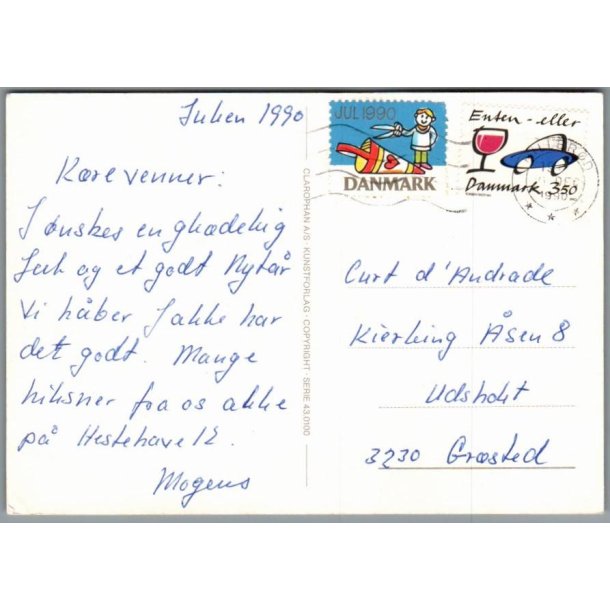 Julen 1990
Kære venner:
I ønskes en glædelig
Jul og et godt Nytår
Vi håber I alle har
det godt. Mange
hilsner fra os alle
på Hestehave 12.
Mogens
CLAROPHAN A/S · KUNSTFORLAG · COPYRIGHT · SERIE 43.0100
JUL 1990
DANMARK
Enten-eller
Danmark 350
Curt d'Andrade
Kierling Åsen 8
Udsholt
3230 Græsted